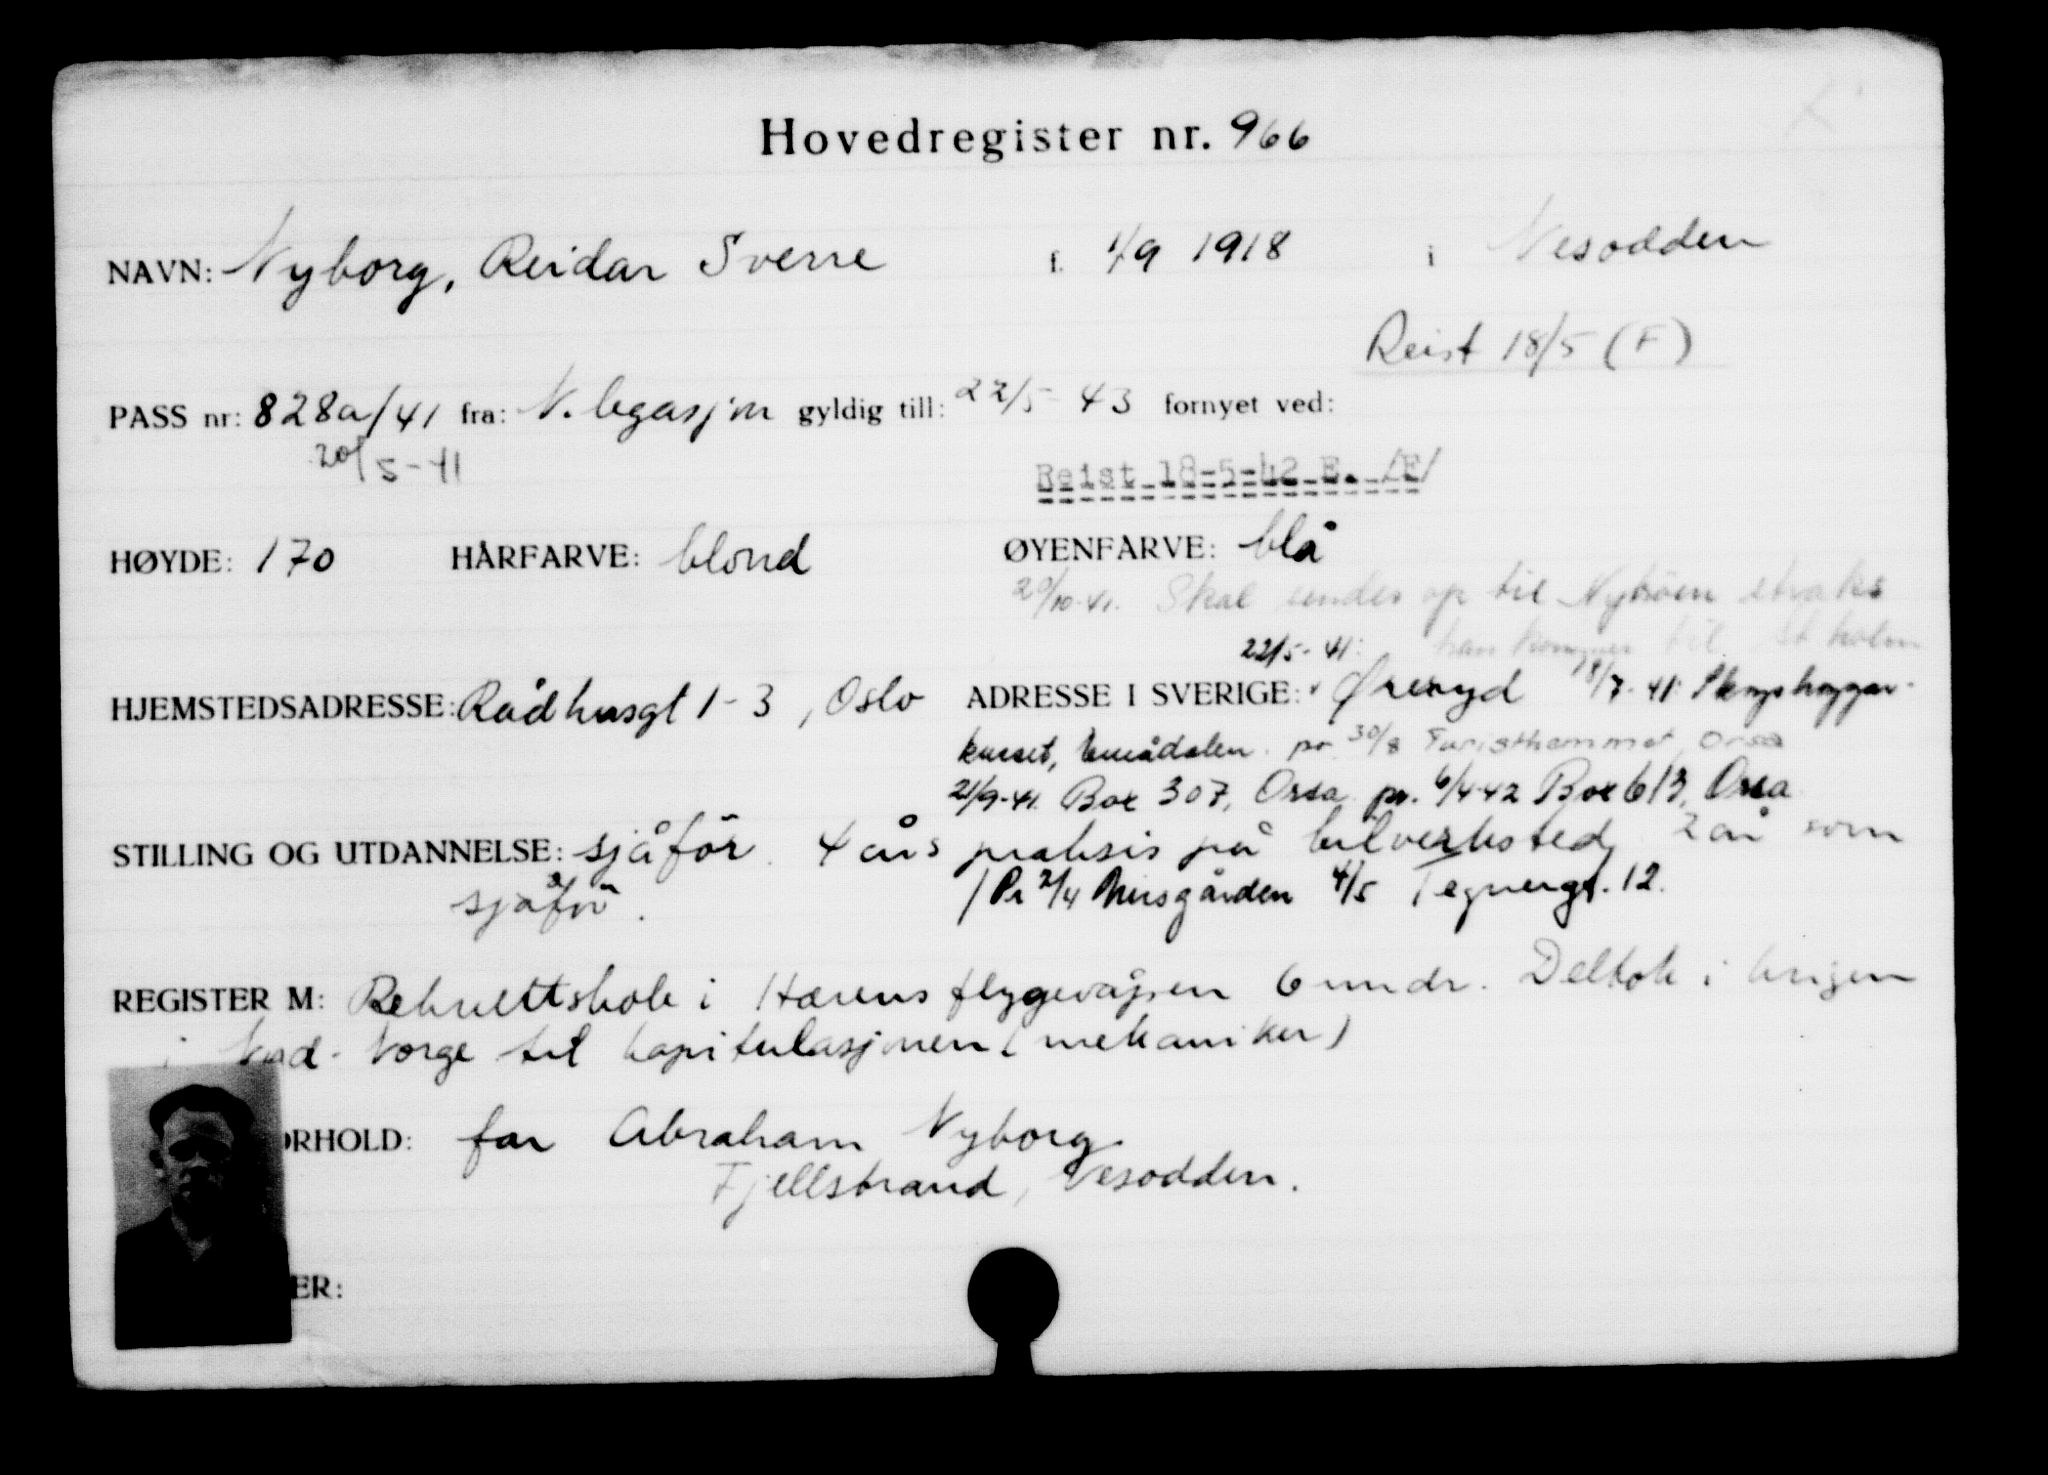 Hovedregister nr. 966
NAVN: Nyborg, Reidar Sverre f. 1/9 1918 i Nesodden
Reist 18/5 (F)
PASS nr: 828a/41 fra: N. legasjon gyldig till: 22/5-43 fornyet ved:
20/5-41
Reist 18-5-42 E. /F/
HØYDE: 170 HÅRFARVE: blond ØYENFARVE: blå
20/10-41. Skal sendes op til straks
22/5-41: han kommer til St holm
HJEMSTEDSADRESSE: Rådhusgt 1-3, Oslo ADRESSE I SVERIGE: Øreryd 18/7-41: Skogshuggar-
kurset, Emådalen. pr 30/8 Turisthemmet, Orsa
21/9-41. Box 307, Orsa pr. 6/4-42 Box 613, Orsa
STILLING OG UTDANNELSE: sjåför. 4 års praksis på bilverksted, 2 år som
sjåför. / Pr 2/4 4/5 Tegnergt. 12.
REGISTER M: Rekruttskole i Hærens flygevåpen 6 mndr. Deltok i krigen
i Nord-Norge til kapitulasjonen (mekaniker)
ORHOLD: far Abraham Nyborg.
Fjellstrand, Nesodden.
ER: